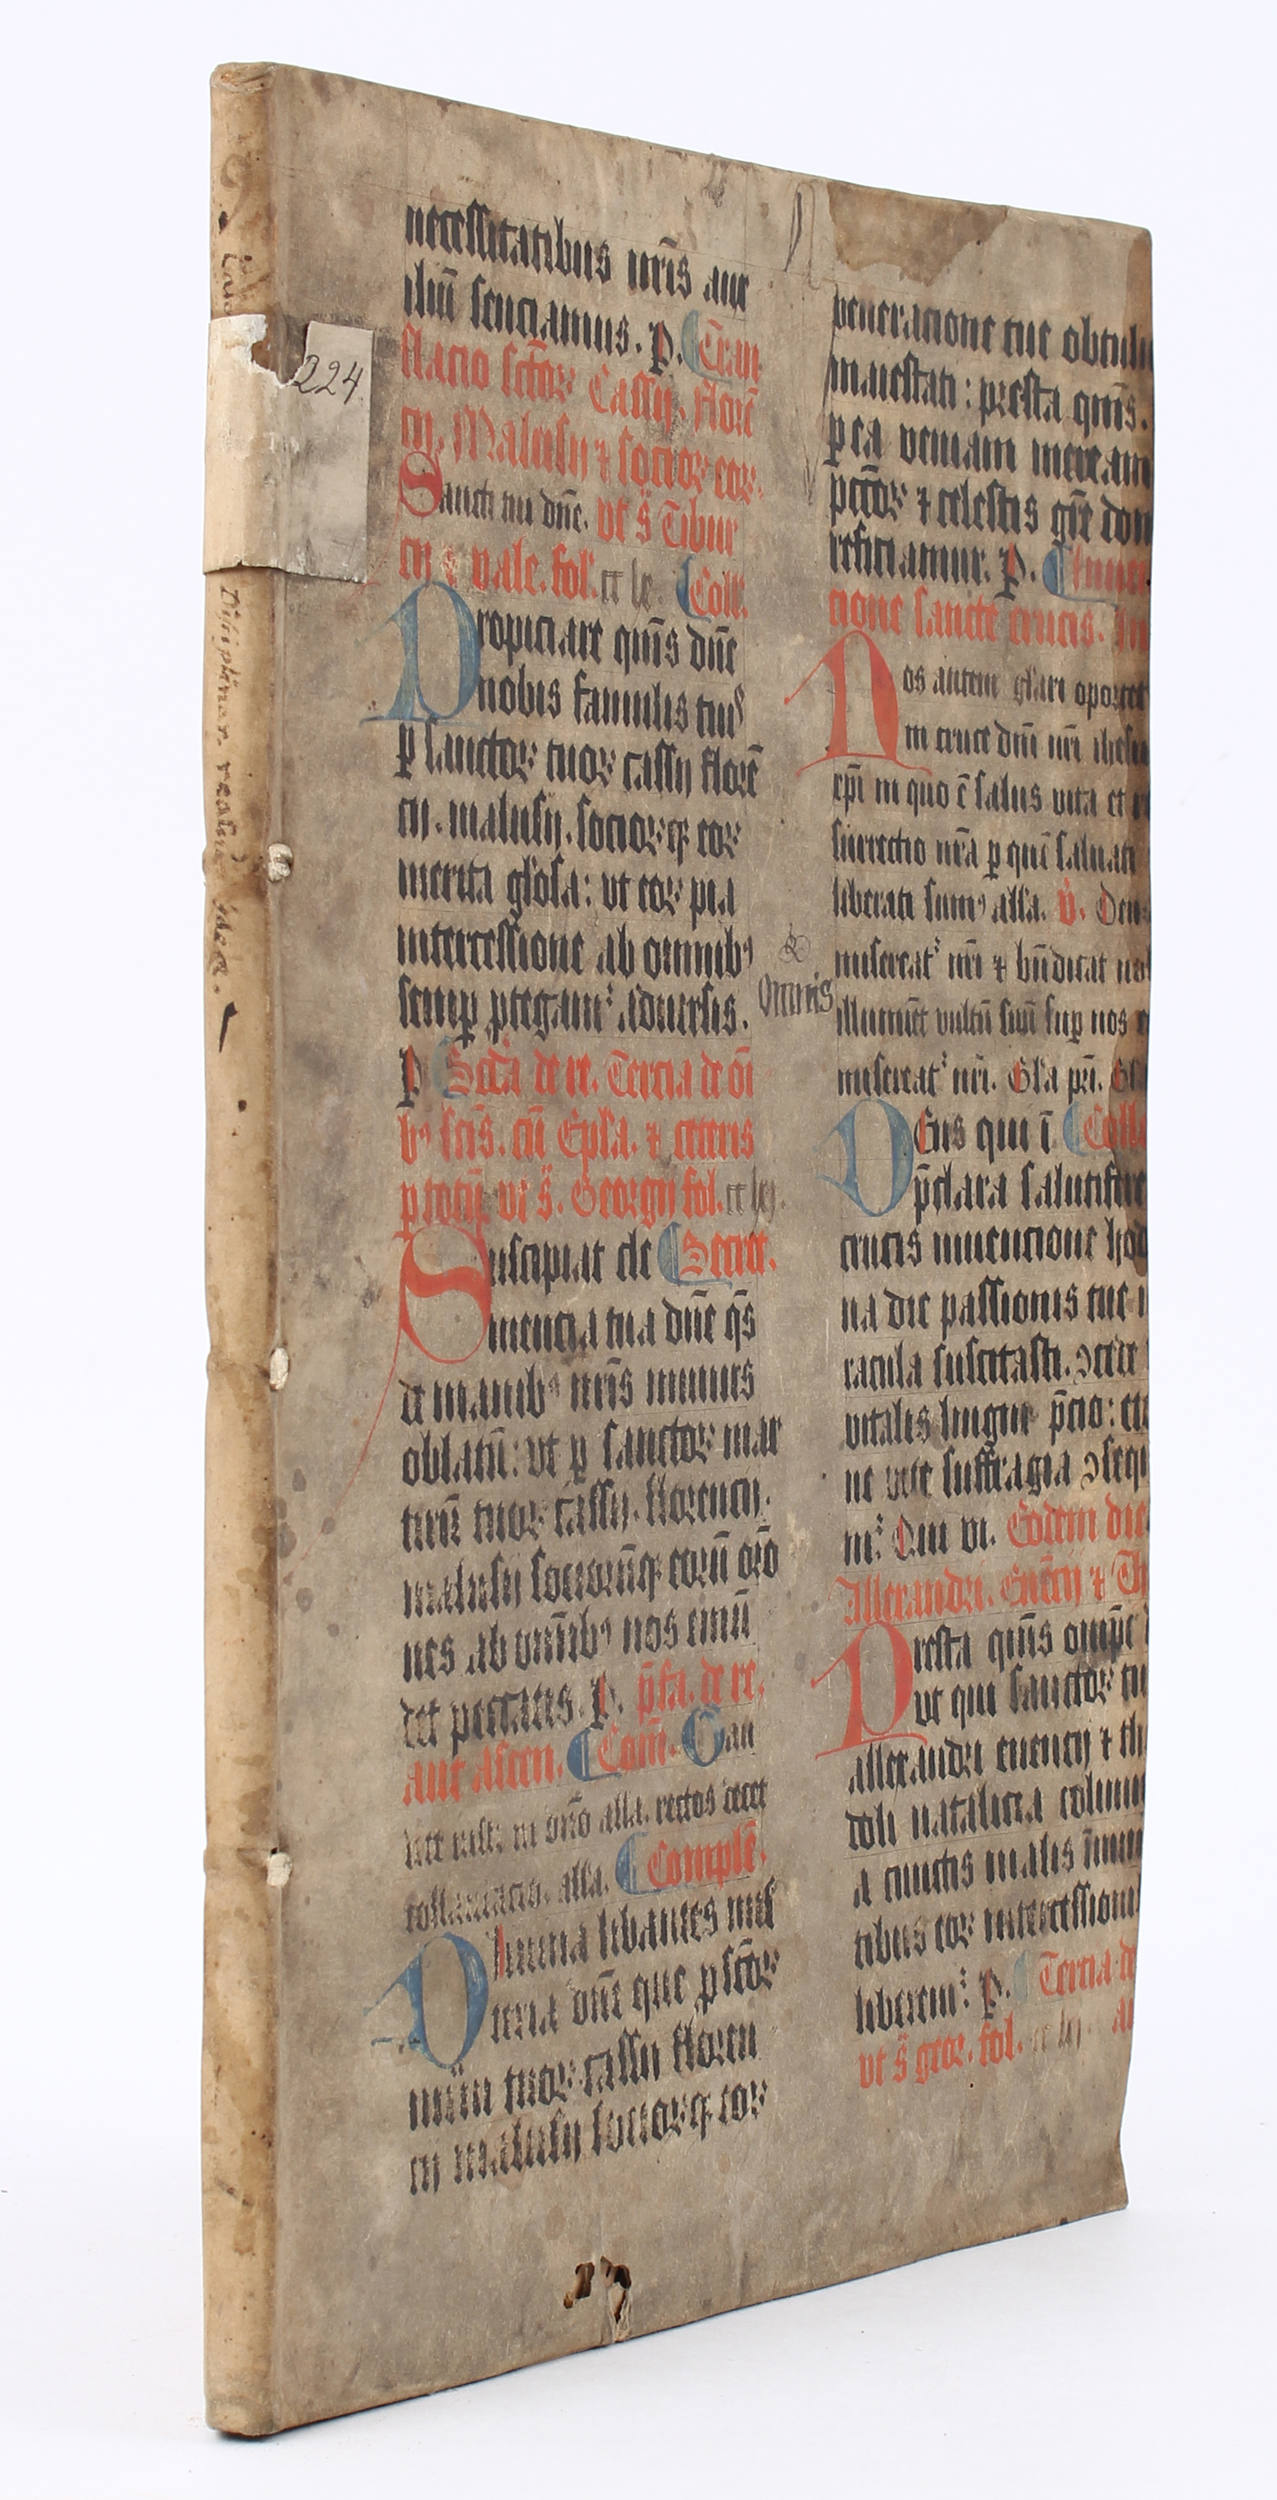 224
Disciplinar. realis idea.
necessitatibus nr̄is aux
iliū senciamus. P. Trans
lacio sc̄toꝝ Cassij. florē
cij. Malusij ⁊ socioꝝ eoꝝ.
Sancti tui dn̄e. vt s̄ Tibur
cij ⁊ vale. fol. et le. Coll.
Propiciare qūis dn̄e
nobis famulis tuis
ꝑ sanctoꝝ tuoꝝ cassij florē
cij. malusij. socioꝝqꝫ eoꝝ
merita gl'osa: vt eoꝝ pia
intercessione ab omnibꝰ
semꝑ ꝓtegamr̉ adversis.
P. Sc̄da de re. Tercia de oī
bꝰ sc̄is. cū Epl'a. ⁊ ceteris
ꝑ totū vt s̄. Georgij fol. et le.
Suscipiat cle Secret.
mencia tua dn̄e qs̄
de manibꝰ nr̄is munus
oblatū: vt ꝑ sanctoꝝ mar
tirū tuoꝝ cassij. florencij.
malusij sociorūqꝫ eorū or̄o
nes ab om̄ibꝰ nos emū
det peccatis. P. p̄fa. de re.
aut ascen. Com̄. Gau
dete iusti in dn̄o alla. rectos decet
collaudacio. alla. Complē.
Divina libantes mis
teria dn̄e que ꝓ sc̄toꝝ
tuoꝝ cassij floren
cij malusij socioꝝqꝫ eoꝝ
omnis
veneracione tue obtuli
maiestati: presta qūis.
ꝑ ea veniam meream
pc̄c̄oꝝ ⁊ celestis gr̄e don
reficiamur. P. Inven
cione sancte crucis.
Nos autem gl'ari oportet
in cruce dn̄i nr̄i ihesu
xp̄i in quo ē salus vita et
surrectio nr̄a ꝑ quē saluati
liberati sumꝰ alla. V̄. Deus
misereatr̉ nr̄i ⁊ bn̄dicat no
illumīet vultū suū suꝑ nos
misereatr̉ nr̄i. Gl'a pr̄i.
Deus qui ī Coll
p̄clara salutifere
crucis invencione hod
na die passionis tue
racula suscitasti. ɔcede
vitalis lingni p̄cio: et
ne vite suffragia ɔsequ
mr̉. Qui vi. Eodem die
Allexandri. Euēcij ⁊ Th
Presta qūis om̄pe
vt qui sanctoꝝ tu
allexandri evencij ⁊ th
doli natalicia colimu
a cunctis malis īmin
tibus eoꝝ intercessioni
liberemr̉. P. Tercia de
vt s̄ geor. fol. et le.